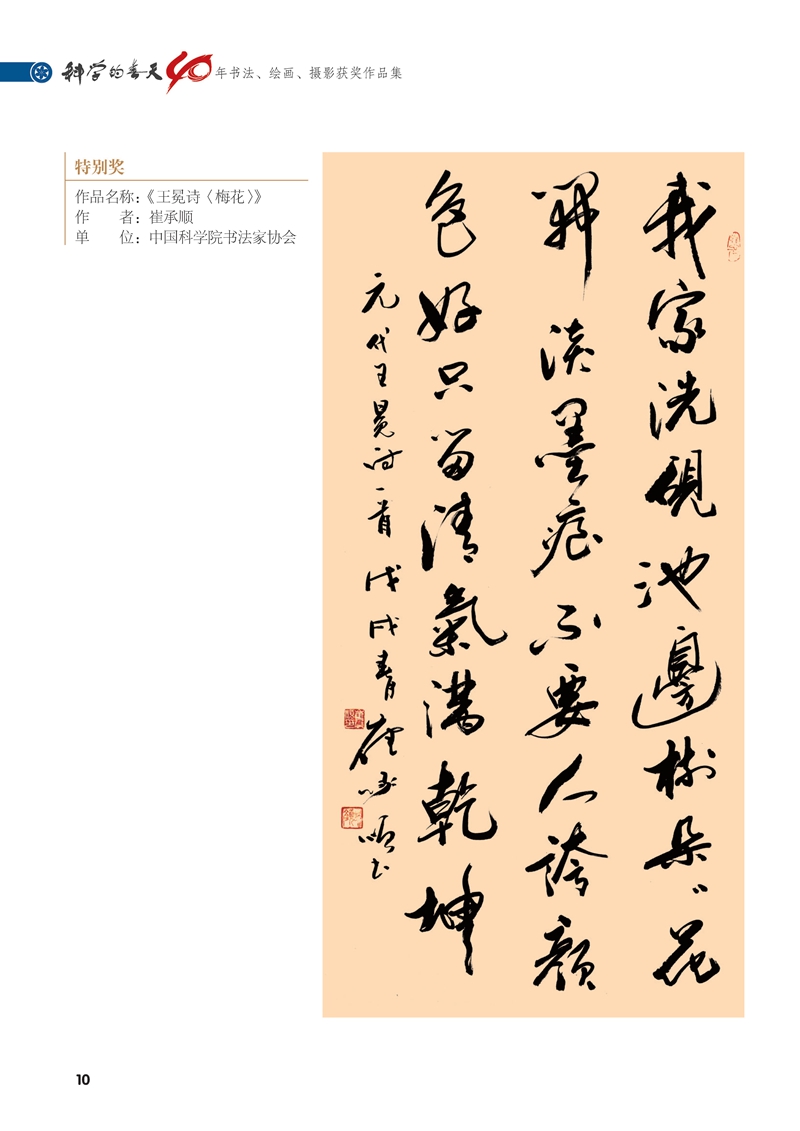 科学的春天40年书法、绘画、摄影获奖作品集
特别奖
作品名称：《王冕诗〈梅花〉》
作　　者：崔承顺
单　　位：中国科学院书法家协会
我家洗硯池邊樹朵〻花
開淡墨痕不要人誇顏
色好只留清氣滿乾坤
元代王冕詩一首 戊戌春月 崔承順書
10